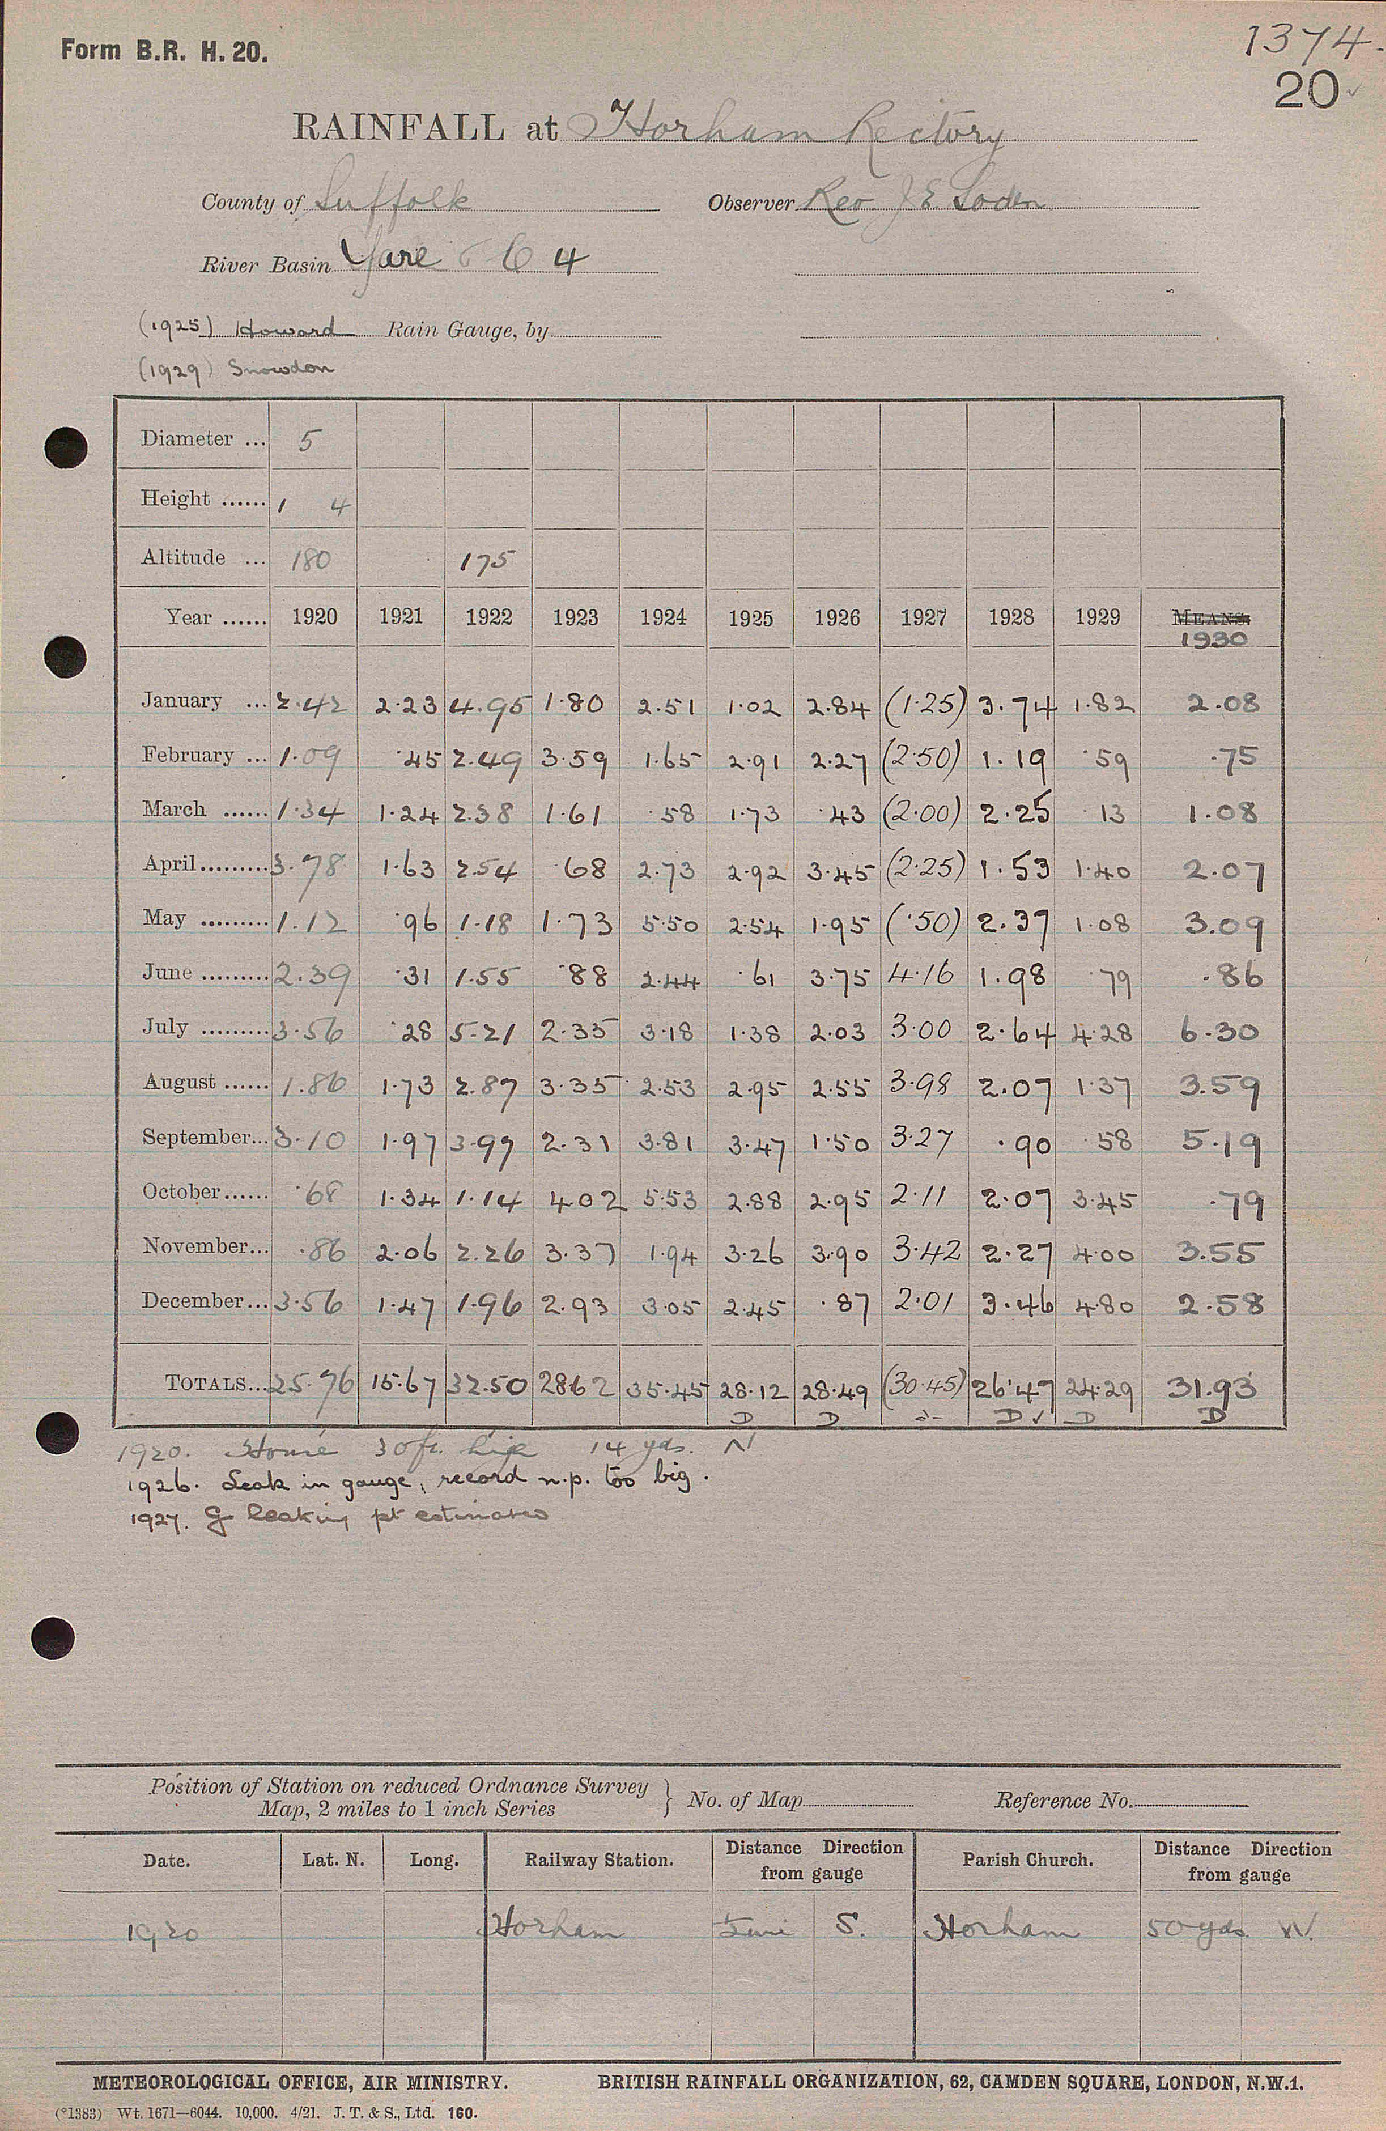 Form B.R. H. 20.
1374.
20
RAINFALL at Horham Rectory
County of Suffolk Observer Rev. J E Soden
River Basin Yare 6 4
(1925) Howard Rain Gauge, by
(1929) Snowdon
Diameter ... 5
Height ...... 1 4
Altitude ... 180 175
Year ...... 1920 1921 1922 1923 1924 1925 1926 1927 1928 1929 MEANS
1930
January ... 2.42 2.23 4.95 1.80 2.51 1.02 2.84 (1.25) 3.74 1.82 2.08
February ... 1.09 .45 2.49 3.59 1.65 2.91 2.27 (2.50) 1.19 .59 .75
March ...... 1.34 1.24 2.38 1.61 .58 1.73 .43 (2.00) 2.25 .13 1.08
April ......... 3.78 1.63 2.54 .68 2.73 2.92 3.45 (2.25) 1.53 1.40 2.07
May ......... 1.12 .96 1.18 1.73 5.50 2.54 1.95 (.50) 2.37 1.08 3.09
June ......... 2.39 .31 1.55 .88 2.44 .61 3.75 4.16 1.98 .79 .86
July ......... 3.56 .28 5.21 2.35 3.18 1.38 2.03 3.00 2.64 4.28 6.30
August ...... 1.86 1.73 2.87 3.35 2.53 2.95 2.55 3.98 2.07 1.37 3.59
September... 3.10 1.97 3.97 2.31 3.81 3.47 1.50 3.27 .90 .58 5.19
October...... .68 1.34 1.14 4.02 5.53 2.88 2.95 2.11 2.07 3.45 .79
November... .86 2.06 2.26 3.37 1.94 3.26 3.90 3.42 2.27 4.00 3.55
December... 3.56 1.47 1.96 2.93 3.05 2.45 .87 2.01 3.46 4.80 2.58
TOTALS... 25.76 15.67 32.50 28.62 35.45 28.12 28.49 (30.45) 26.47 24.29 31.93
D D D ✓ D D
1920. House 30 ft. high 14 yds. N
1926. Leak in gauge, record n.p. too big.
1927. G leaking pt estimates
Position of Station on reduced Ordnance Survey
Map, 2 miles to 1 inch Series } No. of Map Reference No.
Date. Lat. N. Long. Railway Station. Distance Direction from gauge Parish Church. Distance Direction from gauge
1920 Horham S. Horham 50 yds W.
METEOROLOGICAL OFFICE, AIR MINISTRY. BRITISH RAINFALL ORGANIZATION, 62, CAMDEN SQUARE, LONDON, N.W.1.
(*1383) Wt. 1671—6044. 10,000. 4/21. J. T. & S., Ltd. 160.